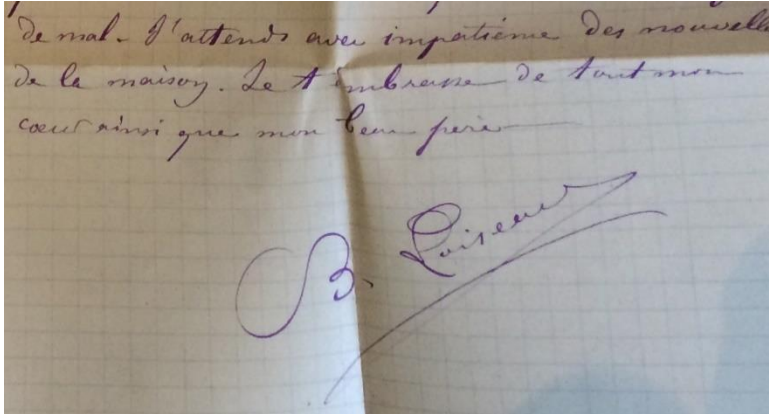 de mal - J'attends avec impatience des nouvelle
de la maison. Je t'embrasse de tout mon
cœur ainsi que mon beau père
B. Loiseau